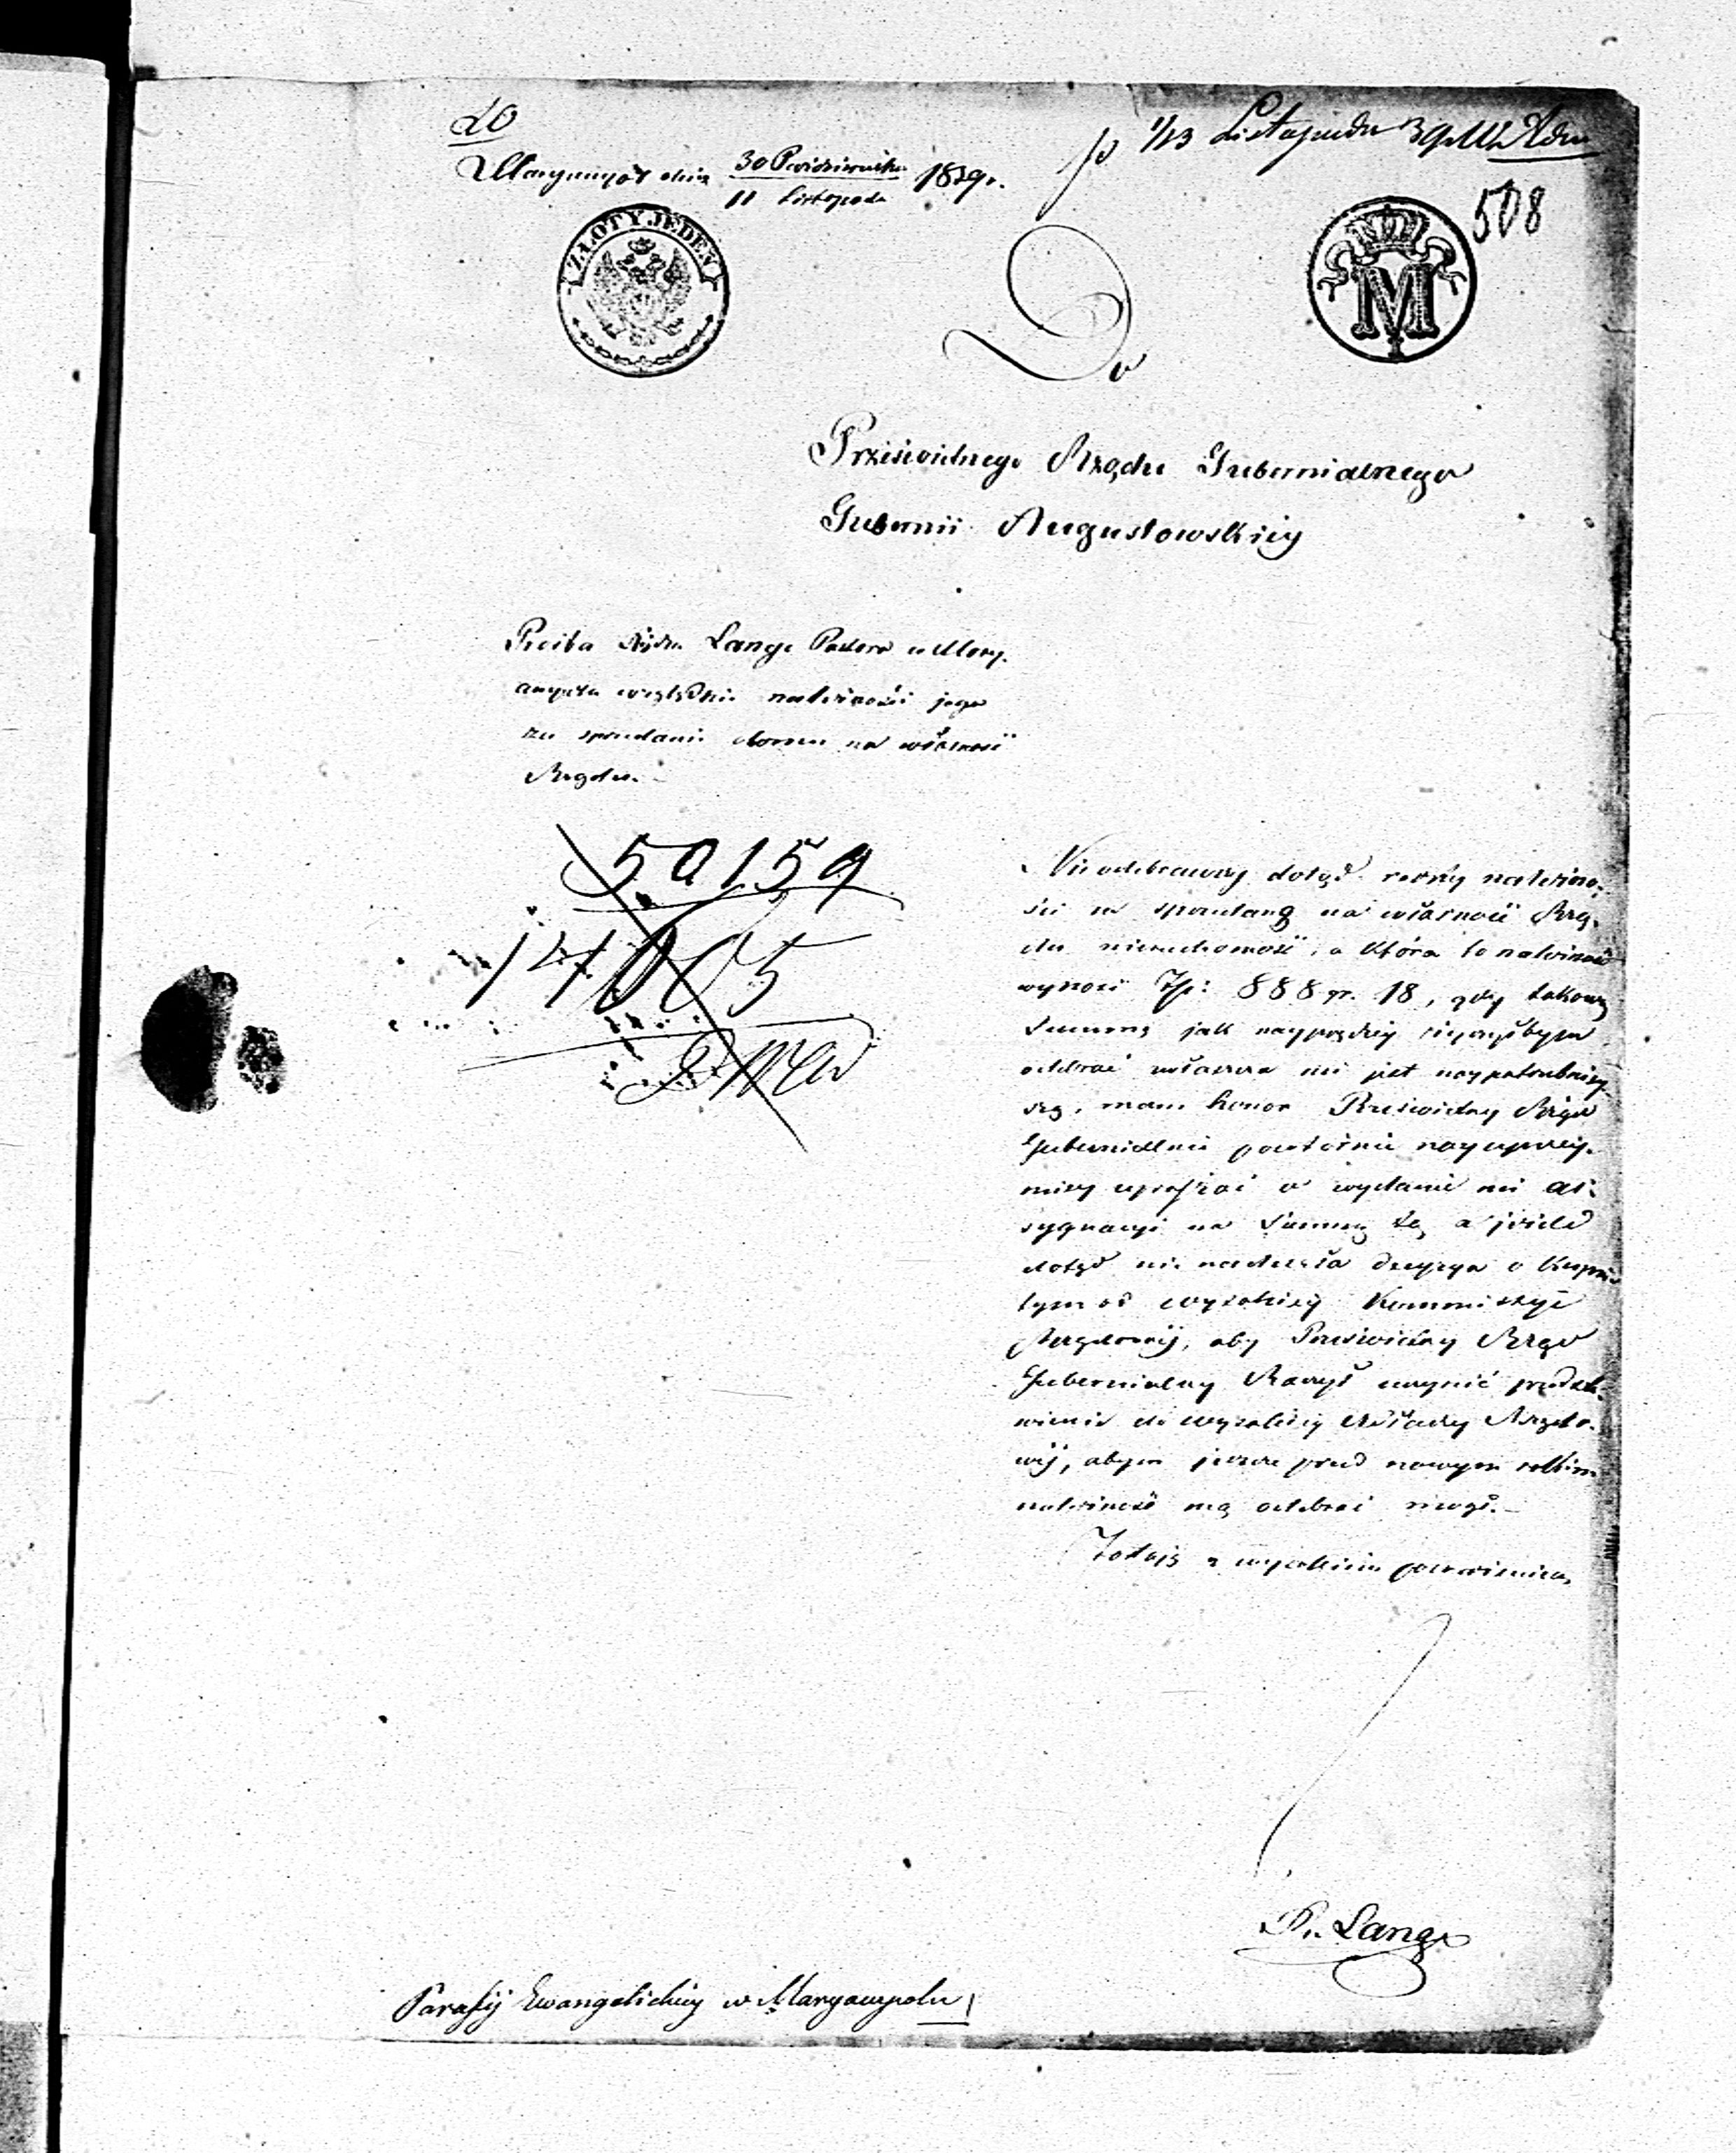 20
Maryampol dnia 30 Października
11 Listopada 1839 r.
1/13 Listopada 39
508
ZŁOTY JEDEN
M
Do
Prześwietnego Rządu Gubernialnego
Gubernii Augustowskiey
Prośba Lange Pastora w Mary-
ampolu względnie należności jego
za sprzedanie domu na własność
Rządu.
50159
14005
Nie odebrawszy dotąd należno-
ści za sprzedaną na własność Rzą-
du nieruchomość, a która to należność
wynosi Złp: 888 gr. 18, gdy takową
Summę jak nayprędzey życzyłbym
odebrać zwłaszcza mi jest naypotrzebniey-
szą, mam honor Prześwietny Rząd
Gubernialny powtórnie nayuprzey-
miey upraszać o wydanie mi as-
sygnacyi na Summę tę, a jeżeli
dotąd nie nadeszła decyzya o kupnie
tym od wysokiey Kommissyi
Rządowej, aby Prześwietny Rząd
Gubernialny Raczył uczynić przedsta-
wienie do wysokiey Władzy Rządo-
wéj, abym jeszcze przed nowym rokiem
należność mą odebrać mógł.—
Zostaję z wysokiem poważaniem,
Lange
Parafij Ewangelickiey w Maryampolu